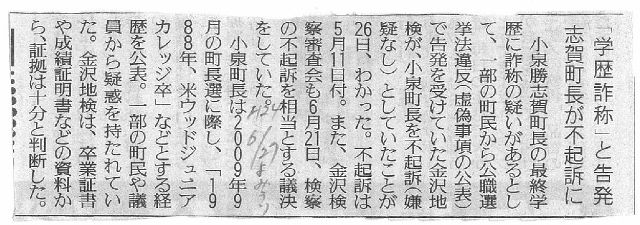 「学歴詐称」と告発
志賀町長が不起訴に
小泉勝志賀町長の最終学
歴に詐称の疑いがあるとし
て、一部の町民から公職選
挙法違反（虚偽事項の公表）
で告発を受けていた金沢地
検が、小泉町長を不起訴（嫌
疑なし）としていたことが
26日、わかった。不起訴は
5月11日付。また、金沢検
察審査会も6月21日、検察
の不起訴を相当とする議決
をしていた。
H24
6/27
よみうり
小泉町長は2009年9
月の町長選に際し、「19
88年、米ウッドジュニア
カレッジ卒」などとする経
歴を公表。一部の町民や議
員から疑惑を持たれてい
た。金沢地検は、卒業証書
や成績証明書などの資料か
ら、証拠は十分と判断した。